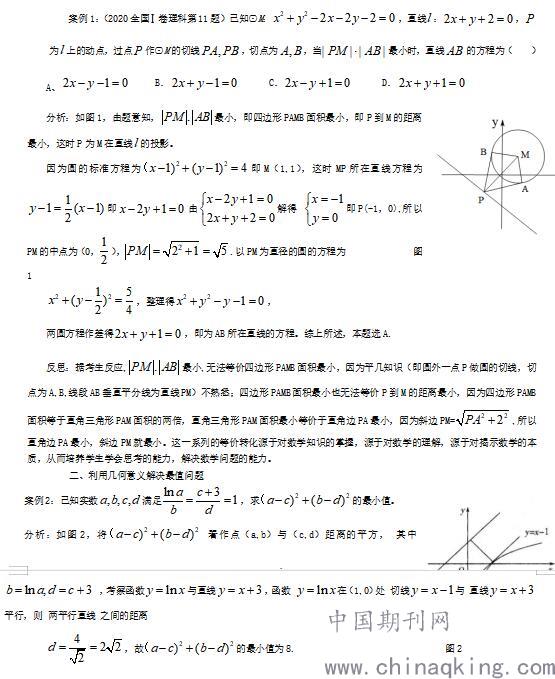 案例1:(2020全国Ⅰ卷理科第11题)已知⊙M: x²+y²−2x−2y−2=0,直线l:2x+y+2=0,P
为l上的动点,过点P作⊙M的切线PA,PB,切点为A,B,当|PM|·|AB|最小时,直线AB的方程为( )
A、2x−y−1=0 B. 2x+y−1=0 C. 2x−y+1=0 D. 2x+y+1=0
分析:如图1,由题意知,|PM|.|AB|最小,即四边形PAMB面积最小,即P到M的距离
最小,这时P为M在直线l的投影。
y
B
M
x
A
P
因为圆的标准方程为(x−1)²+(y−1)²=4即M(1,1),这时MP所在直线方程为
y−1=1/2(x−1)即x−2y+1=0由{x−2y+1=0 2x+y+2=0解得{x=−1 y=0即P(-1,0).所以
PM的中点为(0,1/2),|PM|=√(2²+1)=√5.以PM为直径的圆的方程为 图
1
x²+(y−1/2)²=5/4,整理得x²+y²−y−1=0,
两圆方程作差得2x+y+1=0,即为AB所在直线的方程。综上所述,本题选A.
反思:据考生反应,|PM|.|AB|最小,无法等价四边形PAMB面积最小,因为平几知识(即圆外一点P做圆的切线,切
点为A,B,线段AB垂直平分线为直线PM)不熟悉;四边形PAMB面积最小也无法等价P到M的距离最小,因为四边形PAMB
面积等于直角三角形PAM面积的两倍,直角三角形PAM面积最小等价于直角边PA最小,因为斜边PM=√(PA²+2²),所以
直角边PA最小,斜边PM就最小。这一系列的等价转化源于对数学知识的掌握,源于对数学的理解,源于对揭示数学的本
质,从而培养学生学会思考的能力,解决数学问题的能力。
二、利用几何意义解决最值问题
案例2:已知实数a,b,c,d满足lna/b=(c+3)/d=1,求(a−c)²+(b−d)²的最小值。
分析:如图2,将(a−c)²+(b−d)²看作点(a,b)与(c,d)距离的平方, 其中
y
y=x-1
x
b=lna,d=c+3,考察函数y=lnx与直线y=x+3,函数 y=lnx在(1,0)处 切线y=x−1与 直线y=x+3
平行,则 两平行直线 之间的距离
d=4/√2=2√2,故(a−c)²+(b−d)²的最小值为8. 图2
中国期刊网
www.chinaqking.com